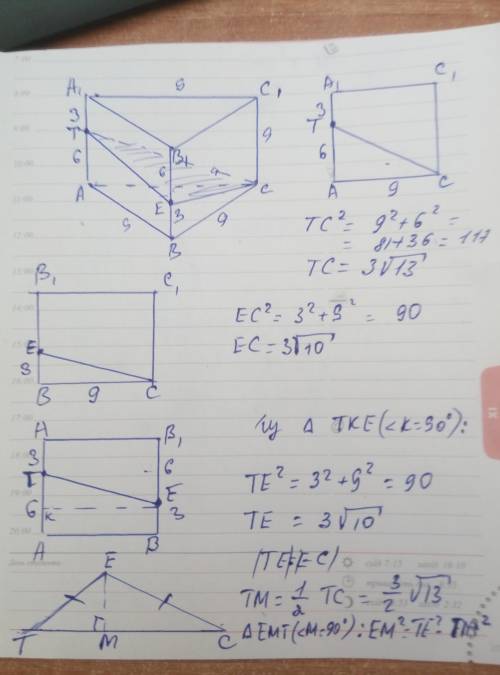 A₁ 9 C₁
3
T
6
B₁
6
9
A
C
E
3
9
9
B
A₁ C₁
3
T
6
A 9 C
TC² = 9² + 6² =
= 81 + 36 = 117
TC = 3√13
B₁ C₁
E
3
B 9 C
EC² = 3² + 9² = 90
EC = 3√10
A B₁
3
T
6
E
6 K
3
A B
Δ TKE (<K=90°):
TE² = 3² + 9² = 90
TE = 3√10
(TE=EC)
E
T M C
TM = 1/2 TC = 3/2 √13
ΔEMT (<M=90°): EM² = TE² -